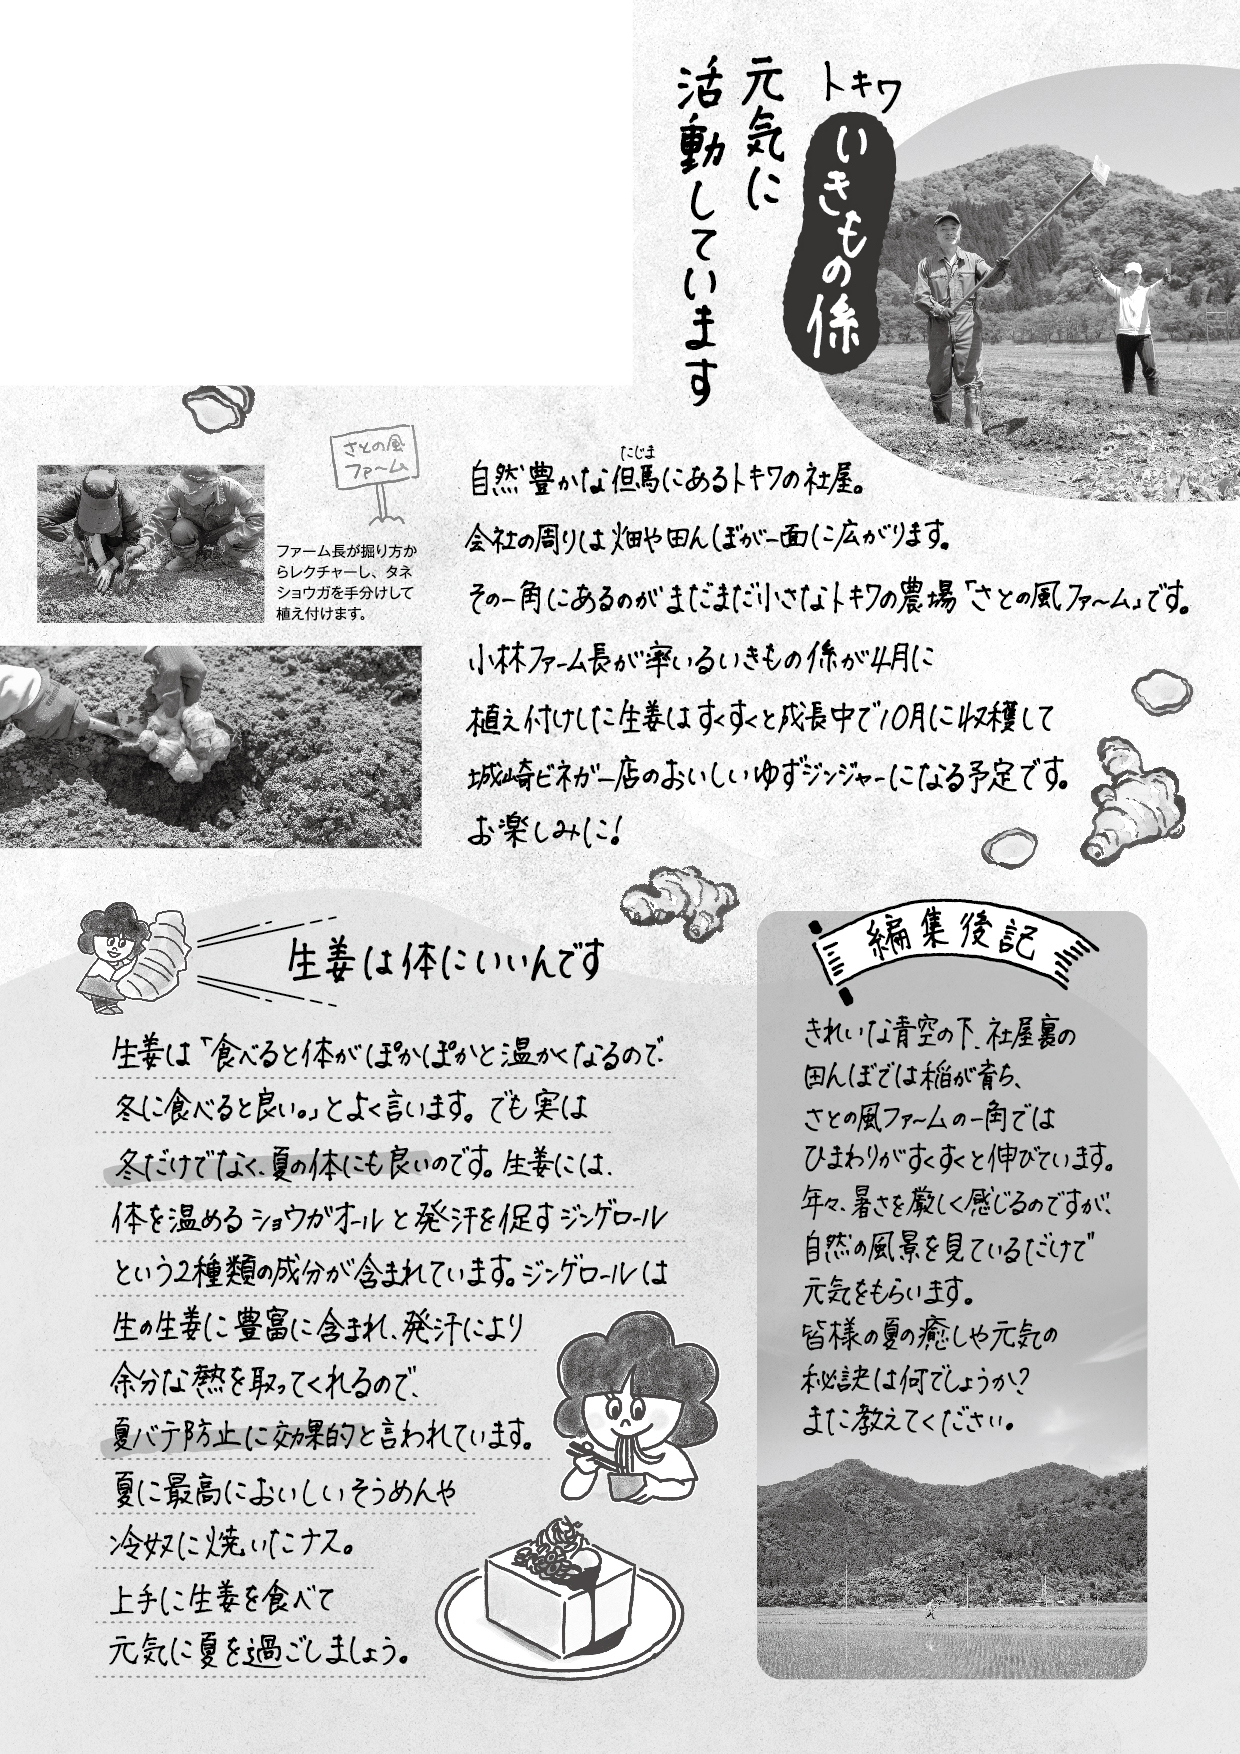 トキワ
いきもの係
元気に
活動しています
さとの風
ファーム
ファーム長が掘り方か
らレクチャーし、タネ
ショウガを手分けして
植え付けます。
たじま
自然豊かな但馬にあるトキワの社屋。
会社の周りは畑や田んぼが一面に広がります。
その一角にあるのがまだまだ小さなトキワの農場「さとの風ファーム」です。
小林ファーム長が率いるいきもの係が4月に
植え付けした生姜はすくすくと成長中で10月に収穫して
城崎ビネガー店のおいしいゆずジンジャーになる予定です。
お楽しみに!
生姜は体にいいんです
生姜は「食べると体がぽかぽかと温かくなるので、
冬に食べると良い。」とよく言います。でも実は
冬だけでなく、夏の体にも良いのです。生姜には、
体を温めるショウガオールと発汗を促すジンゲロール
という2種類の成分が含まれています。ジンゲロールは
生の生姜に豊富に含まれ、発汗により
余分な熱を取ってくれるので、
夏バテ防止に効果的と言われています。
夏に最高においしいそうめんや
冷奴に焼いたナス。
上手に生姜を食べて
元気に夏を過ごしましょう。
編集後記
きれいな青空の下、社屋裏の
田んぼでは稲が育ち、
さとの風ファームの一角では
ひまわりがすくすくと伸びています。
年々、暑さを厳しく感じるのですが、
自然の風景を見ているだけで
元気をもらいます。
皆様の夏の癒しや元気の
秘訣は何でしょうか?
また教えてください。